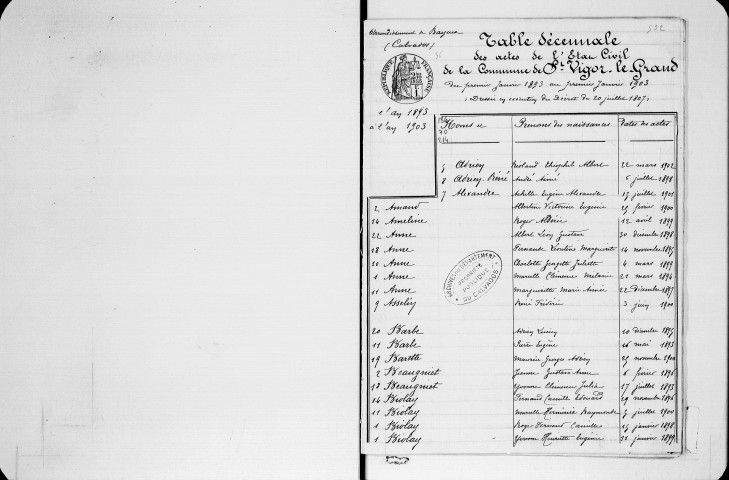 Arrondissement de Bayeux
(Calvados)
552
Table décennale
des actes de l'Etat Civil
de la Commune de St Vigor-le-Grand
du premier Janvier 1893 au premier Janvier 1903
(Dressée en exécution du Décret du 20 juillet 1807)
RÉPUBLIQUE FRANÇAISE
l'an 1893
à l'an 1903
Noms et Prénoms des naissances Dates des actes
5 Adrien Théophile Albert 22 mars 1902
8 Adrien-Réné André Aimé 6 juillet 1898
7 Alexandre Achille Eugène Alexandre juillet 1901
2 Amand Albertine Victorine Eugénie 25 février 1900
14 Ameline Roger 12 avril 1899
22 Anne Albert Léon Gustave 30 décembre 1898
18 Anne Fernande Léontine Marguerite 14 novembre 1895
10 Anne Charlotte Juliette 4 mars 1899
1 Anne Marcelle Clémence Mélanie 21 mars 1894
11 Anne Marguerite Marie Aimée 22 Décembre 1897
9 Asselin René Frédéric 3 juin 1900
ARCHIVES DU DÉPARTEMENT
PROPRIÉTÉ
PUBLIQUE
DU CALVADOS
20 Barbe Lucien 10 décembre 1895
11 Barbe Pierre Eugène 16 mai 1893
19 Barette Maurice Georges 25 novembre
2 Beaugniet Jeanne Gustave Anne 6 février 1896
12 Beaugniet Yvonne Clémence Julia 17 juillet 1893
14 Biolay Fernand Camille Edouard 29 novembre 1896
11 Biolay Marcelle Herminie Raymonde 5 juillet 1900
1 Biolay Fernand Camille 15 janvier 1898
1 Biolay Yvonne Henriette Eugénie janvier 1899